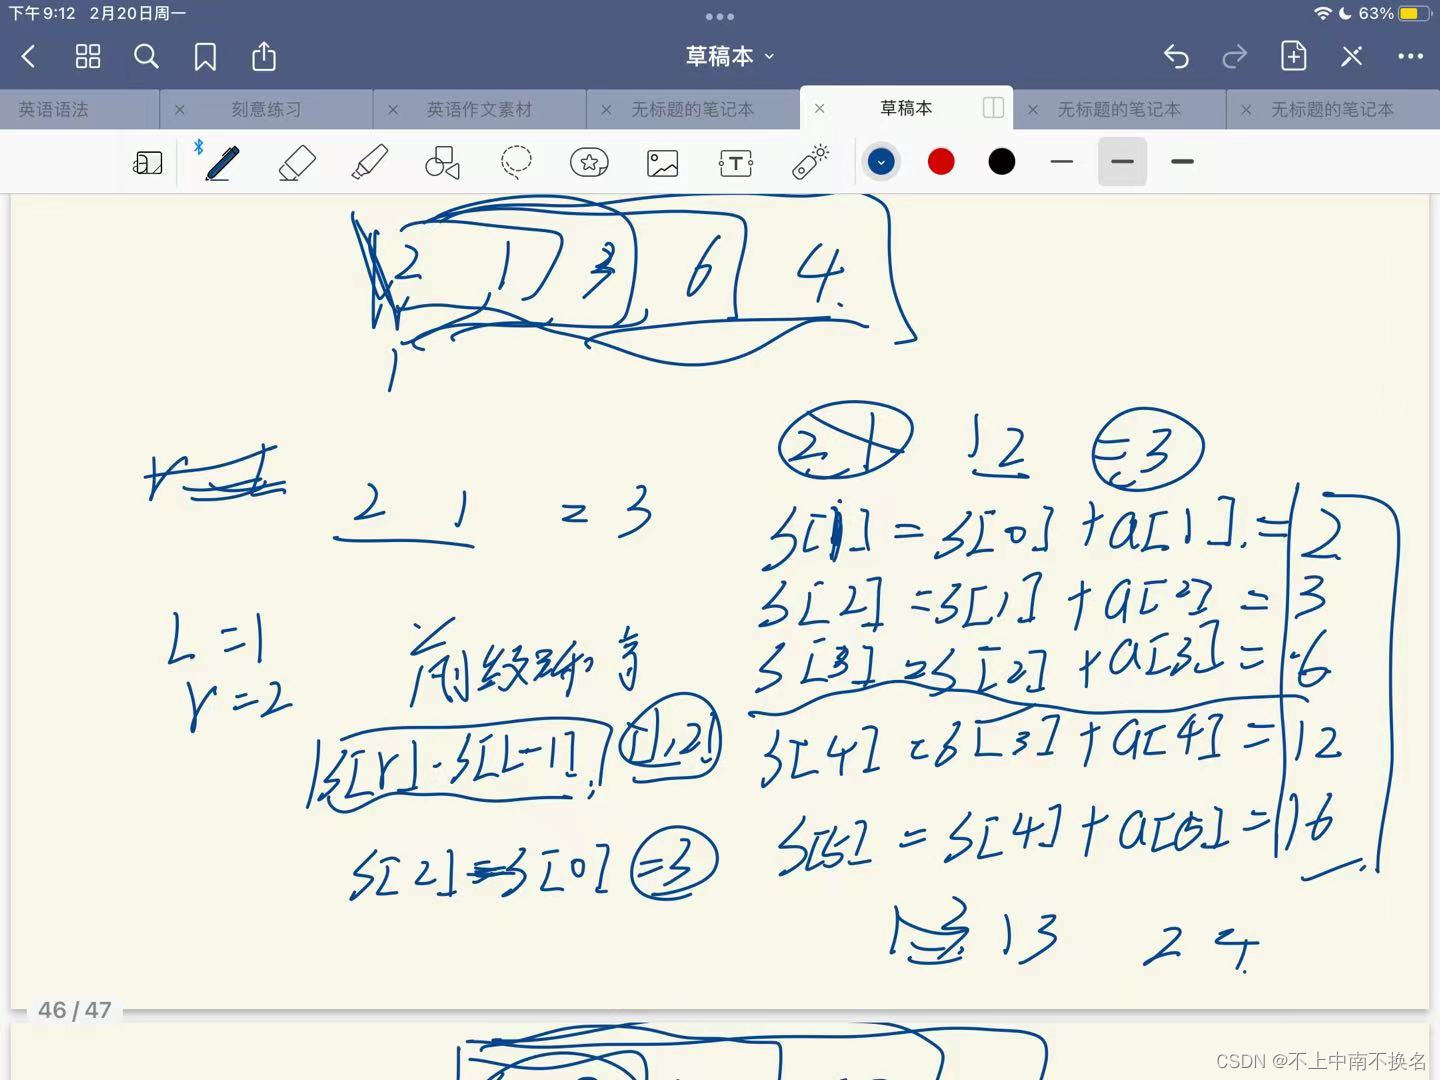 下午9:12 2月20日周一
63%
草稿本
英语语法
刻意练习
英语作文素材
无标题的笔记本
草稿本
无标题的笔记本
无标题的笔记本
T
2 1 3 6 4
1
2 1 1 2 = 3
2 1 = 3
S[1] = S[0] + a[1] = 2
S[2] = S[1] + a[2] = 3
S[3] = S[2] + a[3] = 6
S[4] = S[3] + a[4] = 12
S[5] = S[4] + a[5] = 16
L = 1
r = 2
S[r] - S[L-1] [1,2]
S[2] - S[0] = 3
1 3 1 3 2 4
46 / 47
CSDN @不上中南不换名